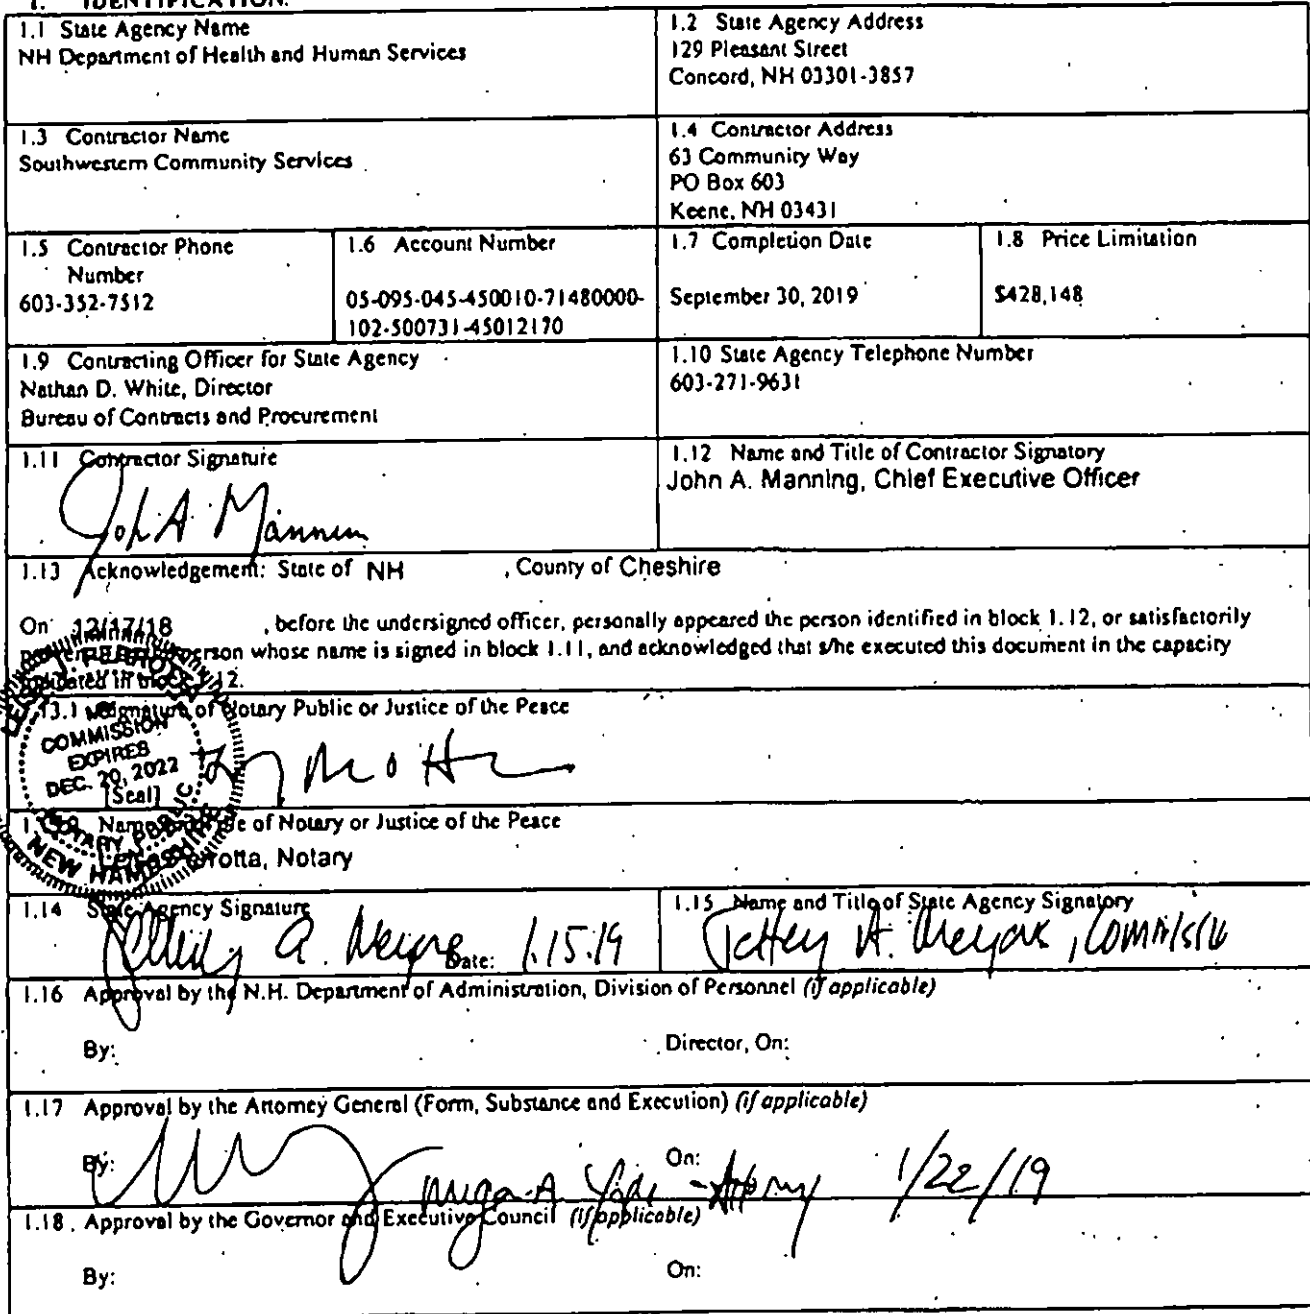 1. IDENTIFICATION.
1.1 State Agency Name
NH Department of Health and Human Services
1.2 State Agency Address
129 Pleasant Street
Concord, NH 03301-3857
1.3 Contractor Name
Southwestern Community Services
1.4 Contractor Address
63 Community Way
PO Box 603
Keene, NH 03431
1.5 Contractor Phone
Number
603-352-7512
1.6 Account Number
05-095-045-450010-71480000-
102-500731-45012170
1.7 Completion Date
September 30, 2019
1.8 Price Limitation
$428,148
1.9 Contracting Officer for State Agency
Nathan D. White, Director
Bureau of Contracts and Procurement
1.10 State Agency Telephone Number
603-271-9631
1.11 Contractor Signature
John A Manning
1.12 Name and Title of Contractor Signatory
John A. Manning, Chief Executive Officer
1.13 Acknowledgement: State of NH , County of Cheshire
On 12/17/18 , before the undersigned officer, personally appeared the person identified in block 1.12, or satisfactorily
person whose name is signed in block 1.11, and acknowledged that s/he executed this document in the capacity
indicated in block 1.12.
1.13.1 Signature of Notary Public or Justice of the Peace
COMMISSION
EXPIRES
DEC. 20, 2022
[Seal]
NOTARY PUBLIC
NEW HAMPSHIRE
Name of Notary or Justice of the Peace
Perrotta, Notary
1.14 State Agency Signature
Date: 1.15.19
1.15 Name and Title of State Agency Signatory
Jeffrey A. Meyers, Commissio
1.16 Approval by the N.H. Department of Administration, Division of Personnel (if applicable)
By: Director, On:
1.17 Approval by the Attorney General (Form, Substance and Execution) (if applicable)
By: On: 1/22/19
1.18 Approval by the Governor and Executive Council (if applicable)
By: On: